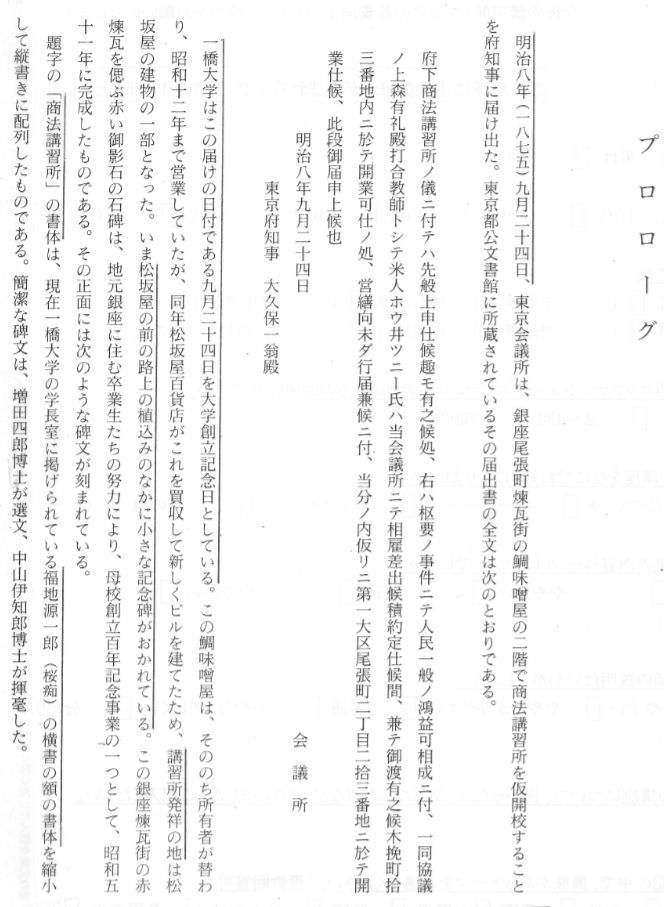 プロローグ
明治八年(一八七五)九月二十四日、東京会議所は、銀座尾張町煉瓦街の鯛味噌屋の二階で商法講習所を仮開校するこ
とを府知事に届け出た。東京都公文書館に所蔵されているその届出書の全文は次のとおりである。
府下商法講習所ノ儀ニ付テハ先般上申仕候趣モ有之候処、右ハ枢要ノ事件ニテ人民一般ノ鴻益可相成ニ付、一同協議
ノ上森有礼殿打合教師トシテ米人ホウ井ツニー氏ハ当会議所ニテ相雇差出候積約定仕候間 兼テ御渡有之候木挽町拾
三番地内ニ於テ開業可仕ノ処、営繕向未ダ行届兼候ニ付、当分ノ内仮リニ第一大区尾張町二丁目二拾三番地ニ於テ開
業仕候、此段御届申上候也
明治八年九月二十四日
会議所
東京府知事 大久保一翁殿
一橋大学はこの届けの日付である九月二十四日を大学創立記念日としている。この鯛味噌屋は、そののち所有者が替わ
り、昭和十二年まで営業していたが、同年松坂屋百貨店がこれを買収して新しくビルを建てたため、講習所発祥の地は松
坂屋の建物の一部となった。いま松坂屋の前の路上の植込みのなかに小さな記念碑がおかれている。この銀座煉瓦街の赤
煉瓦を偲ぶ赤い御影石の石碑は、地元銀座に住む卒業生たちの努力により、母校創立百年記念事業の一つとして、昭和五
十一年に完成したものである。その正面には次のような碑文が刻まれている。
題字の「商法講習所」の書体は、現在一橋大学の学長室に掲げられている福地源一郎(桜痴)の横書の額の書体を縮小
して縦書きに配列したものである。簡潔な碑文は、増田四郎博士が選文、中山伊知郎博士が揮毫した。